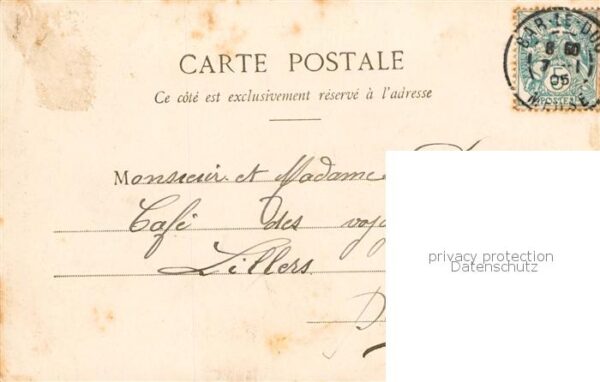 BAR-LE-DUC
8 50
7 - 1
05
MEUSE
5
POSTES
CARTE POSTALE
Ce côté est exclusivement réservé à l'adresse
Monsieur et Madame
Café des
Lillers
privacy protection
Datenschutz